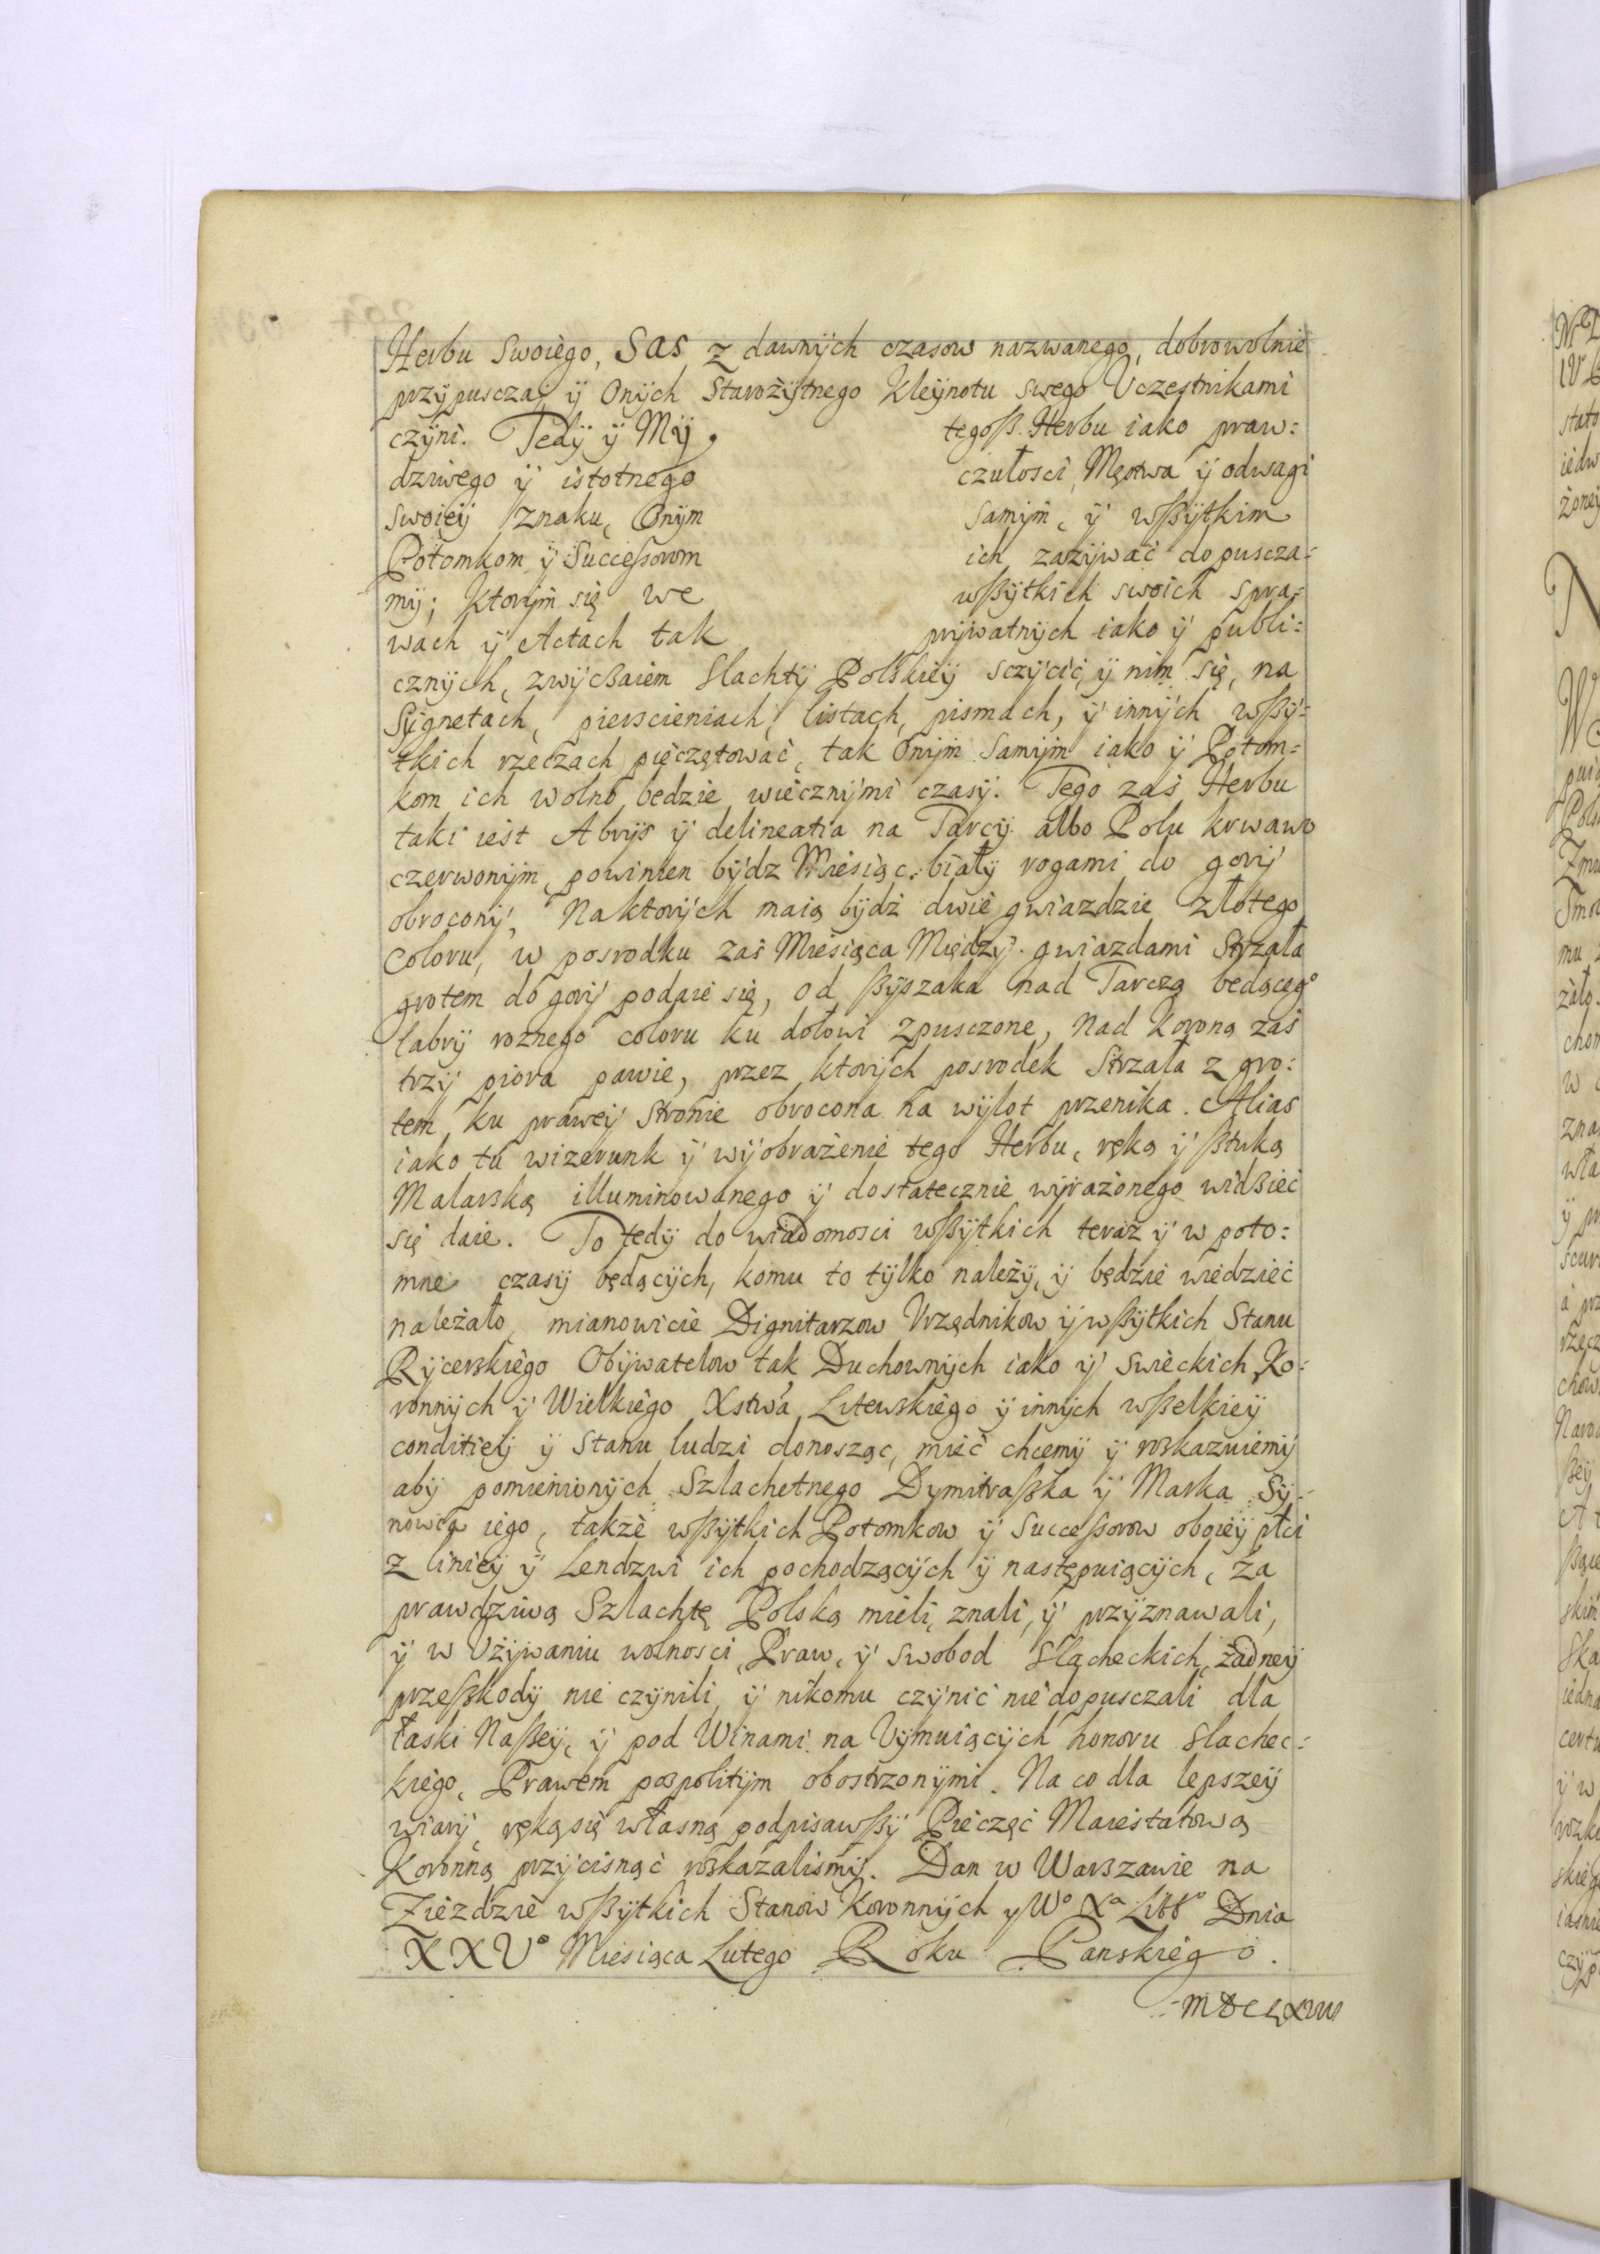 Herbu swoiego, Sas z dawnÿch czasow nazwanego, dobrowolnie
przÿpuscza, ÿ Onÿch Starożÿtnego Kleÿnotu swego Vczestnikami
czÿni. Tedÿ ÿ Mÿ, tegoß Herbu iako praw:
dziwego ÿ istotnego czułosci, Męstwa ÿ odwagi
swoieÿ znaku, Onÿm samÿm, ÿ wßÿtkim
Potomkom ÿ Successorom ich zazÿwać dopuscza:
mÿ; ktorÿm się we wßÿtkich swoich spra:
wach ÿ Actach tak prÿwatnÿch iako ÿ publi:
cznÿch, zwÿcßaiem Slachtÿ Polskieÿ sczÿcić, ÿ nim się, na
Sÿgnetach, pierscieniach, listach, pismach, ÿ innÿch wßÿ:
tkich rzeczach pięczętować, tak Onÿm samÿm iako ÿ Potom:
kom ich wolno bedzie wiecznÿmi czasÿ. Tego zaś Herbu
taki iest Abrÿs ÿ delineatia na Tarczÿ albo Polu krwawo
czerwonÿm, powinien bÿdz Miesiąc białÿ rogami do gorÿ
obroconÿ, Naktorÿch maią bÿdź dwie gwiazdzie złotego
Coloru, w posrodku zaś Miesiąca Międzÿ gwiazdami Strzała
grotem do gorÿ podaie się, od ßÿszaka nad Tarczą bedącego
labrÿ roznego coloru ku dołowi zpusczone, Nad Koroną zaś
trzÿ piora pawie, przez ktorÿch posrodek Strzała z gro:
tem, ku praweÿ stronie obrocona na wÿlot przenika. Alias
iako tu wizerunk ÿ wÿobrażenie tego Herbu, ręką ÿ ßtuką
Malarską illuminowanego ÿ dostatecznie wÿrażonego widßieć
się daie. To tedÿ do wiadomosci wßÿtkich teraz ÿ w poto:
mne czasÿ będącÿch, komu to tÿlko należÿ, ÿ będzie wiedzieć
należało, mianowicie Dignitarzow Vrzędnikow ÿ wßÿtkich Stanu
Rÿcerskiego Obÿwatelow tak Duchownÿch iako ÿ swieckich, Ko:
ronnÿch ÿ Wielkiego Xstwa Litewskiego ÿ innÿch wßelkieÿ
conditieÿ ÿ Stanu ludzi donosząc, mieć chcemÿ ÿ roskazuiemÿ
abÿ pomienionÿch Szlachetnego Dymitraßka ÿ Marka Sÿ:
nowca iego, także wßÿtkich Potomkow ÿ Successorow oboieÿ płci
z linieÿ ÿ Lendzwi ich pochodzącÿch ÿ następuiącÿch, za
prawdziwą Szlachtę Polską mieli, znali, ÿ przÿznawali,
ÿ w Vżÿwaniu wolnosci, Praw, ÿ swobod Slacheckich, żadneÿ
przeßkodÿ nie czÿnili, ÿ nikomu czÿnić nie dopusczali dla
łaski Naßeÿ, ÿ pod Winami na Vÿmuiącÿch honoru slachec:
kiego, Prawem pospolitÿm obostrzonÿmi. Na co dla lepszeÿ
wiarÿ, ręką się własną podpisawßÿ Pieczęć Maiestatową
Koronną przÿcisnąć roskazalismÿ. Dan w Warszawie na
Zieździe wßÿtkich Stanow Koronnÿch y Wo Xa Litto Dnia
XXVo Miesiąca Lutego Roku Panskiego.